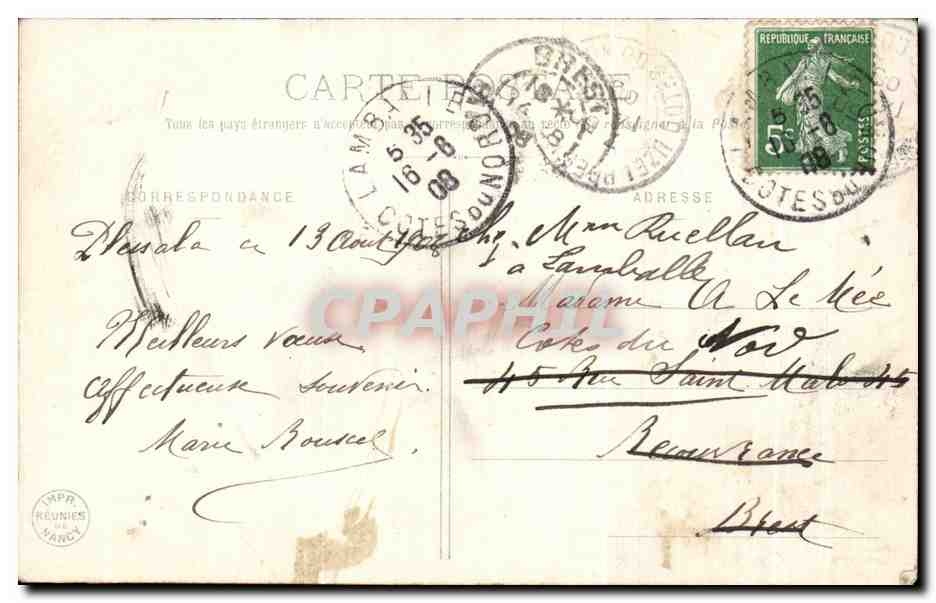 CARTE POSTALE
Tous les pays étrangers n'acceptent pas la correspondance au recto se renseigner à la Poste
CORRESPONDANCE
ADRESSE
REPUBLIQUE FRANÇAISE
5c
POSTES
LAMBALLE
5 35
16 -8
08
COTES DU NORD
BREST
5 35
16 -8
08
COTES DU NORD
Plessala ce 13 Août 1908
Meilleurs vœux
affectueux souvenir
Marie Rouxel
chez Mme Ruellan
a Lamballe
Madame A Le Mée
Cotes du Nord
45 Rue Saint Malo 45
Recouvrance
Brest
CPAPHIL
IMPR.
RÉUNIES
DE
NANCY